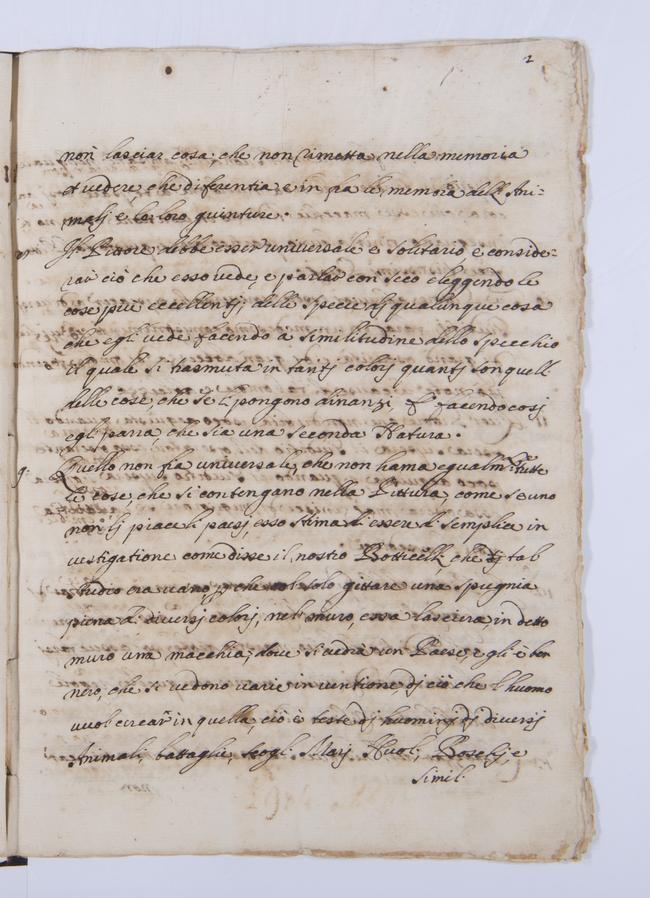 2
non lasciar cosa, che non rimetta nella memoria
et vedere, che diferentia è in fra le memora dell Ani=
malj e le loro giunture.
Il Pittore debbe esser universale e solitario e conside=
rar ciò che esso vede, e parlar con seco eleggendo le
cose piu eccellentj, delle specie dj qualunque cosa
che egli vede facendo a similitudine dello specchio
il quale si trasmuta in tantj colorj quantj son quell
delle cose, che se li pongono dinanzi, & facendo cosj
egli parra, che sia una seconda Natura.
9. Quello non fia universale, che non hama egualmte tutte
le cose, che si contengano nella Pittura, come se uno
non lj piace li paesj, esso stima li essere di semplice in
vestigatione come disse il nostro Botticelli che dj tal
studio era vano, p che col solo gittare una spugnia
piena di diversj colorj, nel muro, essa lasciera in detto
muro una macchia, dove si vedra un Paese, egli è ben
vero, che si vedono varie inventione dj ciò che l'huomo
vuol cercar in quella, ciò è teste dj huominj dj diversj
Animali, battaglie, scogli Marj Nuoli, Boschj, e
simil.